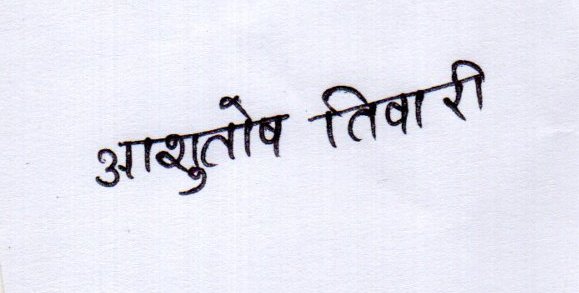 आशुतोष तिवारी